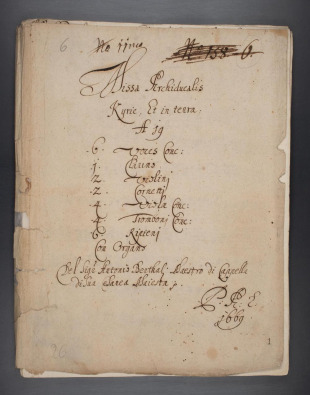 6 No
6.
Missa Archiducalis
Kyrie, Et in terra.
A 19
.6. Voces Conc:
.1. Clarino
.2. Violini
.2. Cornetti
.4. Viole Conc:
Tromboni Conc:
.6. Ripieni
Con Organo
Del Sigr Antonio Berthali Maestro di Cappella
di Sua Maiesta
1669
1
26